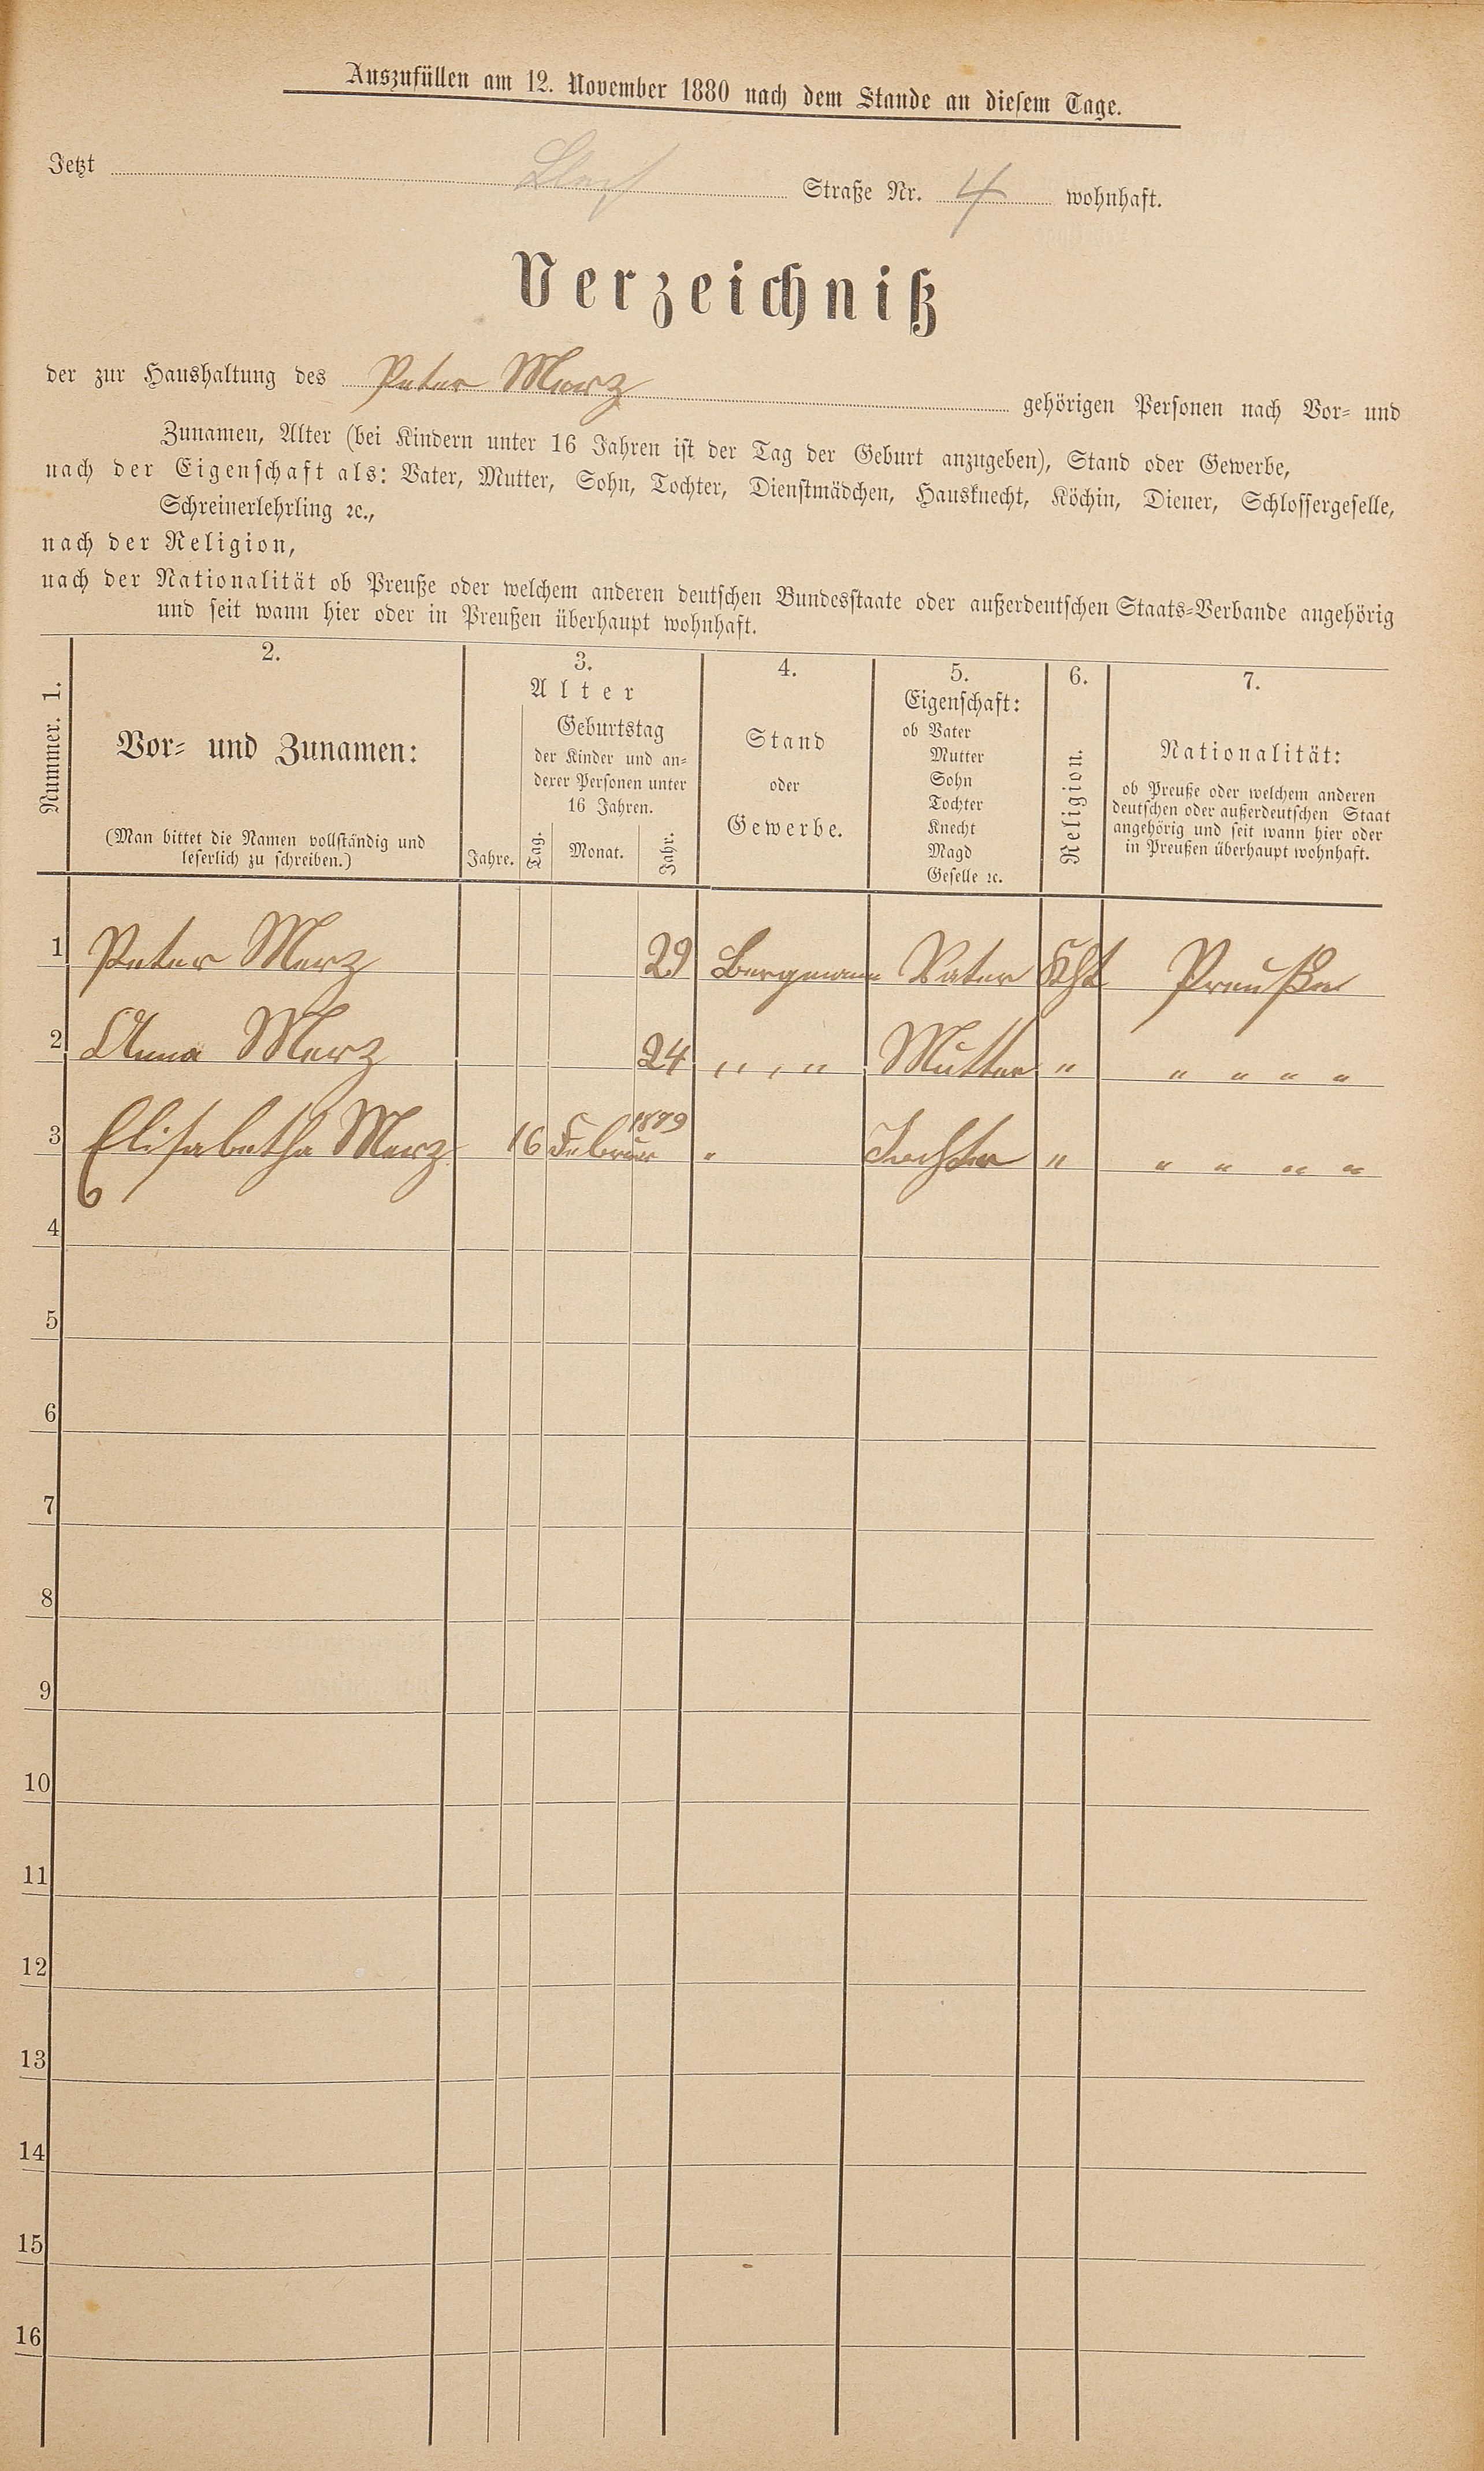 Auszufüllen am 12. November 1880 nach dem Stande an diesem Tage.
Jetzt Straße Nr. 4 wohnhaft.
Verzeichniß
der zur Haushaltung des Peter Merz gehörigen Personen nach Vor- und
Zunamen, Alter (bei Kindern unter 16 Jahren ist der Tag der Geburt anzugeben), Stand oder Gewerbe,
nach der Eigenschaft als: Vater, Mutter, Sohn, Tochter, Dienstmädchen, Hausknecht, Köchin, Diener, Schlossergeselle,
Schreinerlehrling ꝛc.,
nach der Religion,
nach der Nationalität ob Preuße oder welchem anderen deutschen Bundesstaate oder außerdeutschen Staats-Verbande angehörig
und seit wann hier oder in Preußen überhaupt wohnhaft.
Nummer. 1.
2.
Vor- und Zunamen:
(Man bittet die Namen vollständig und
leserlich zu schreiben.)
3.
Alter
Geburtstag
der Kinder und an-
derer Personen unter
16 Jahren.
Jahre. Tag. Monat. Jahr.
4.
Stand
oder
Gewerbe.
5.
Eigenschaft:
ob Vater
Mutter
Sohn
Tochter
Knecht
Magd
Geselle ꝛc.
6.
Religion.
7.
Nationalität:
ob Preuße oder welchem anderen
deutschen oder außerdeutschen Staat
angehörig und seit wann hier oder
in Preußen überhaupt wohnhaft.
1 Peter Merz 29 Bergmann Vater Kht Preuße
2 Anna Merz 24 " " Mutter " " " " "
3 Elisabetha Merz 16 Februar 1879 " Tochter " " " " "
4
5
6
7
8
9
10
11
12
13
14
15
16